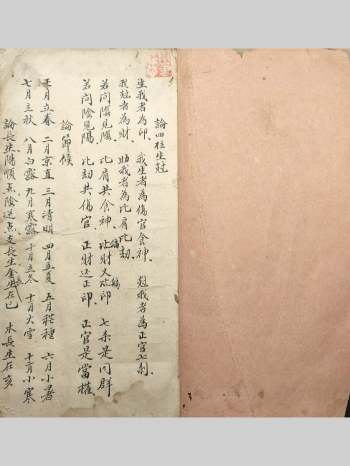 論四柱生尅
生我者為印、我生者為傷官食神、尅我者為正官七刹、
我尅者為財、助我者為比肩比劫、
若問陽見陽、比肩共食神、偏財又偏印、七杀是同群
若問陰見陽、比劫共傷官、正財还正印、正官是當權
論節候
正月立春 二月京直 三月清明 四月立夏 五月芒種 六月小暑
七月立秋 八月白露 九月寒露 十月立冬 十月大雪 十二月小寒
論長生陽順去陰逆去支長生金生在巳 木長生在亥